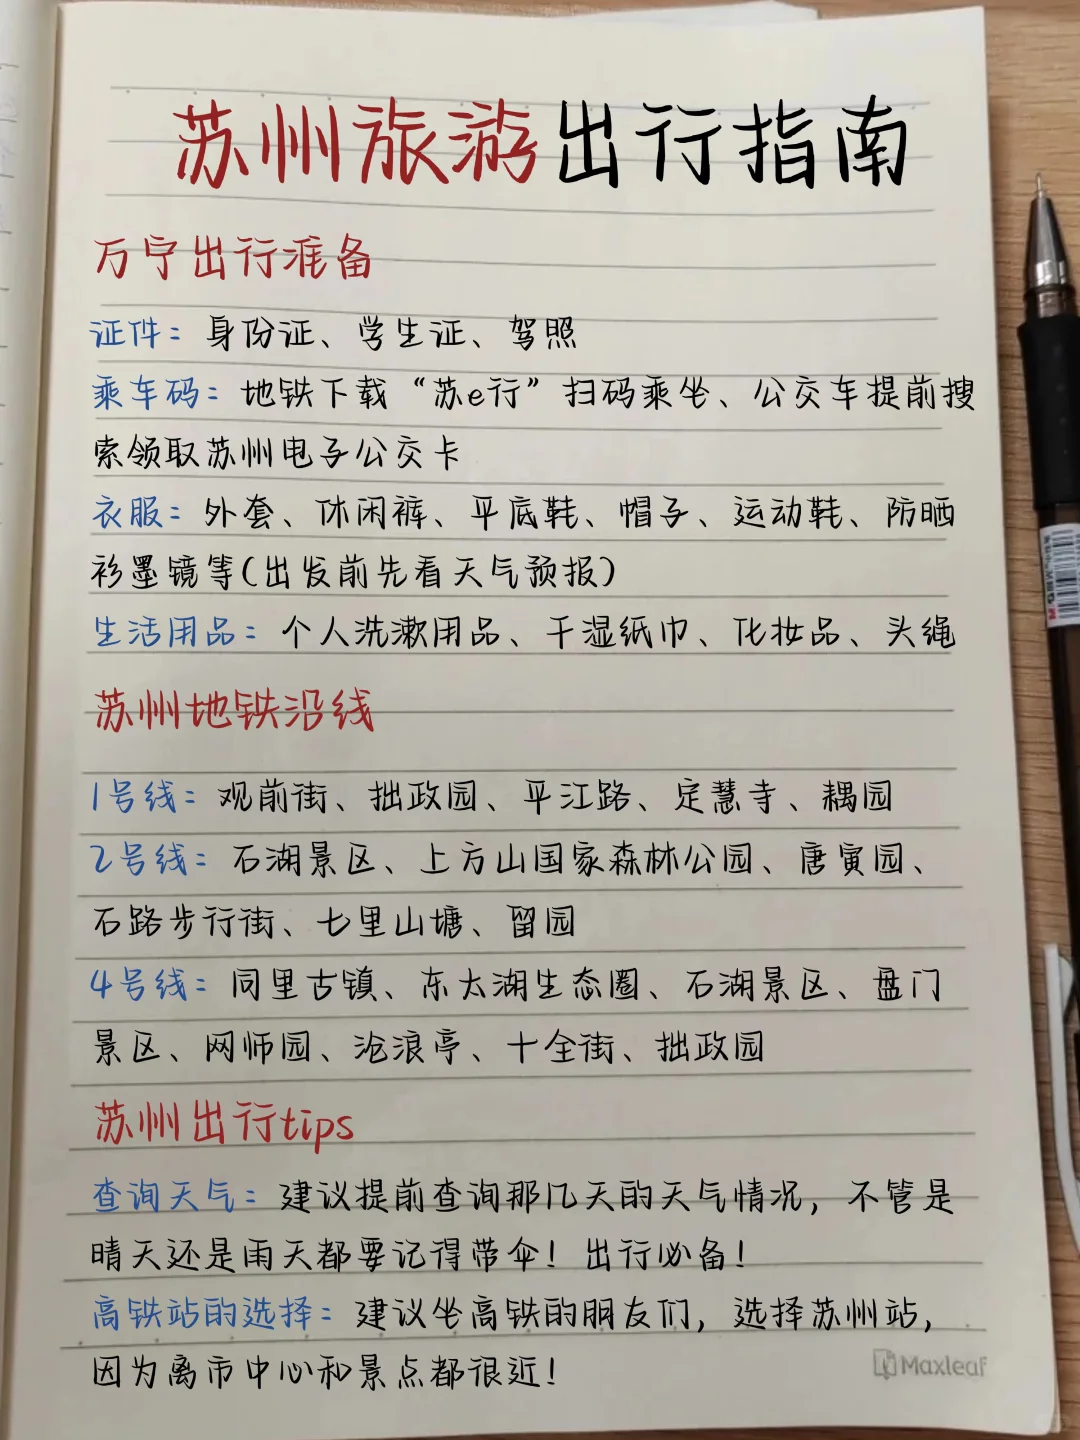 苏州旅游出行指南
万宁出行准备
证件：身份证、学生证、驾照
乘车码：地铁下载“苏e行”扫码乘坐、公交车提前搜
索领取苏州电子公交卡
衣服：外套、休闲裤、平底鞋、帽子、运动鞋、防晒
衫墨镜等(出发前先看天气预报)
生活用品：个人洗漱用品、干湿纸巾、化妆品、头绳
苏州地铁沿线
1号线：观前街、拙政园、平江路、定慧寺、耦园
2号线：石湖景区、上方山国家森林公园、唐寅园、
石路步行街、七里山塘、留园
4号线：同里古镇、东太湖生态圈、石湖景区、盘门
景区、网师园、沧浪亭、十全街、拙政园
苏州出行tips
查询天气：建议提前查询那几天的天气情况，不管是
晴天还是雨天都要记得带伞！出行必备！
高铁站的选择：建议坐高铁的朋友们，选择苏州站，
因为离市中心和景点都很近！
Maxleaf